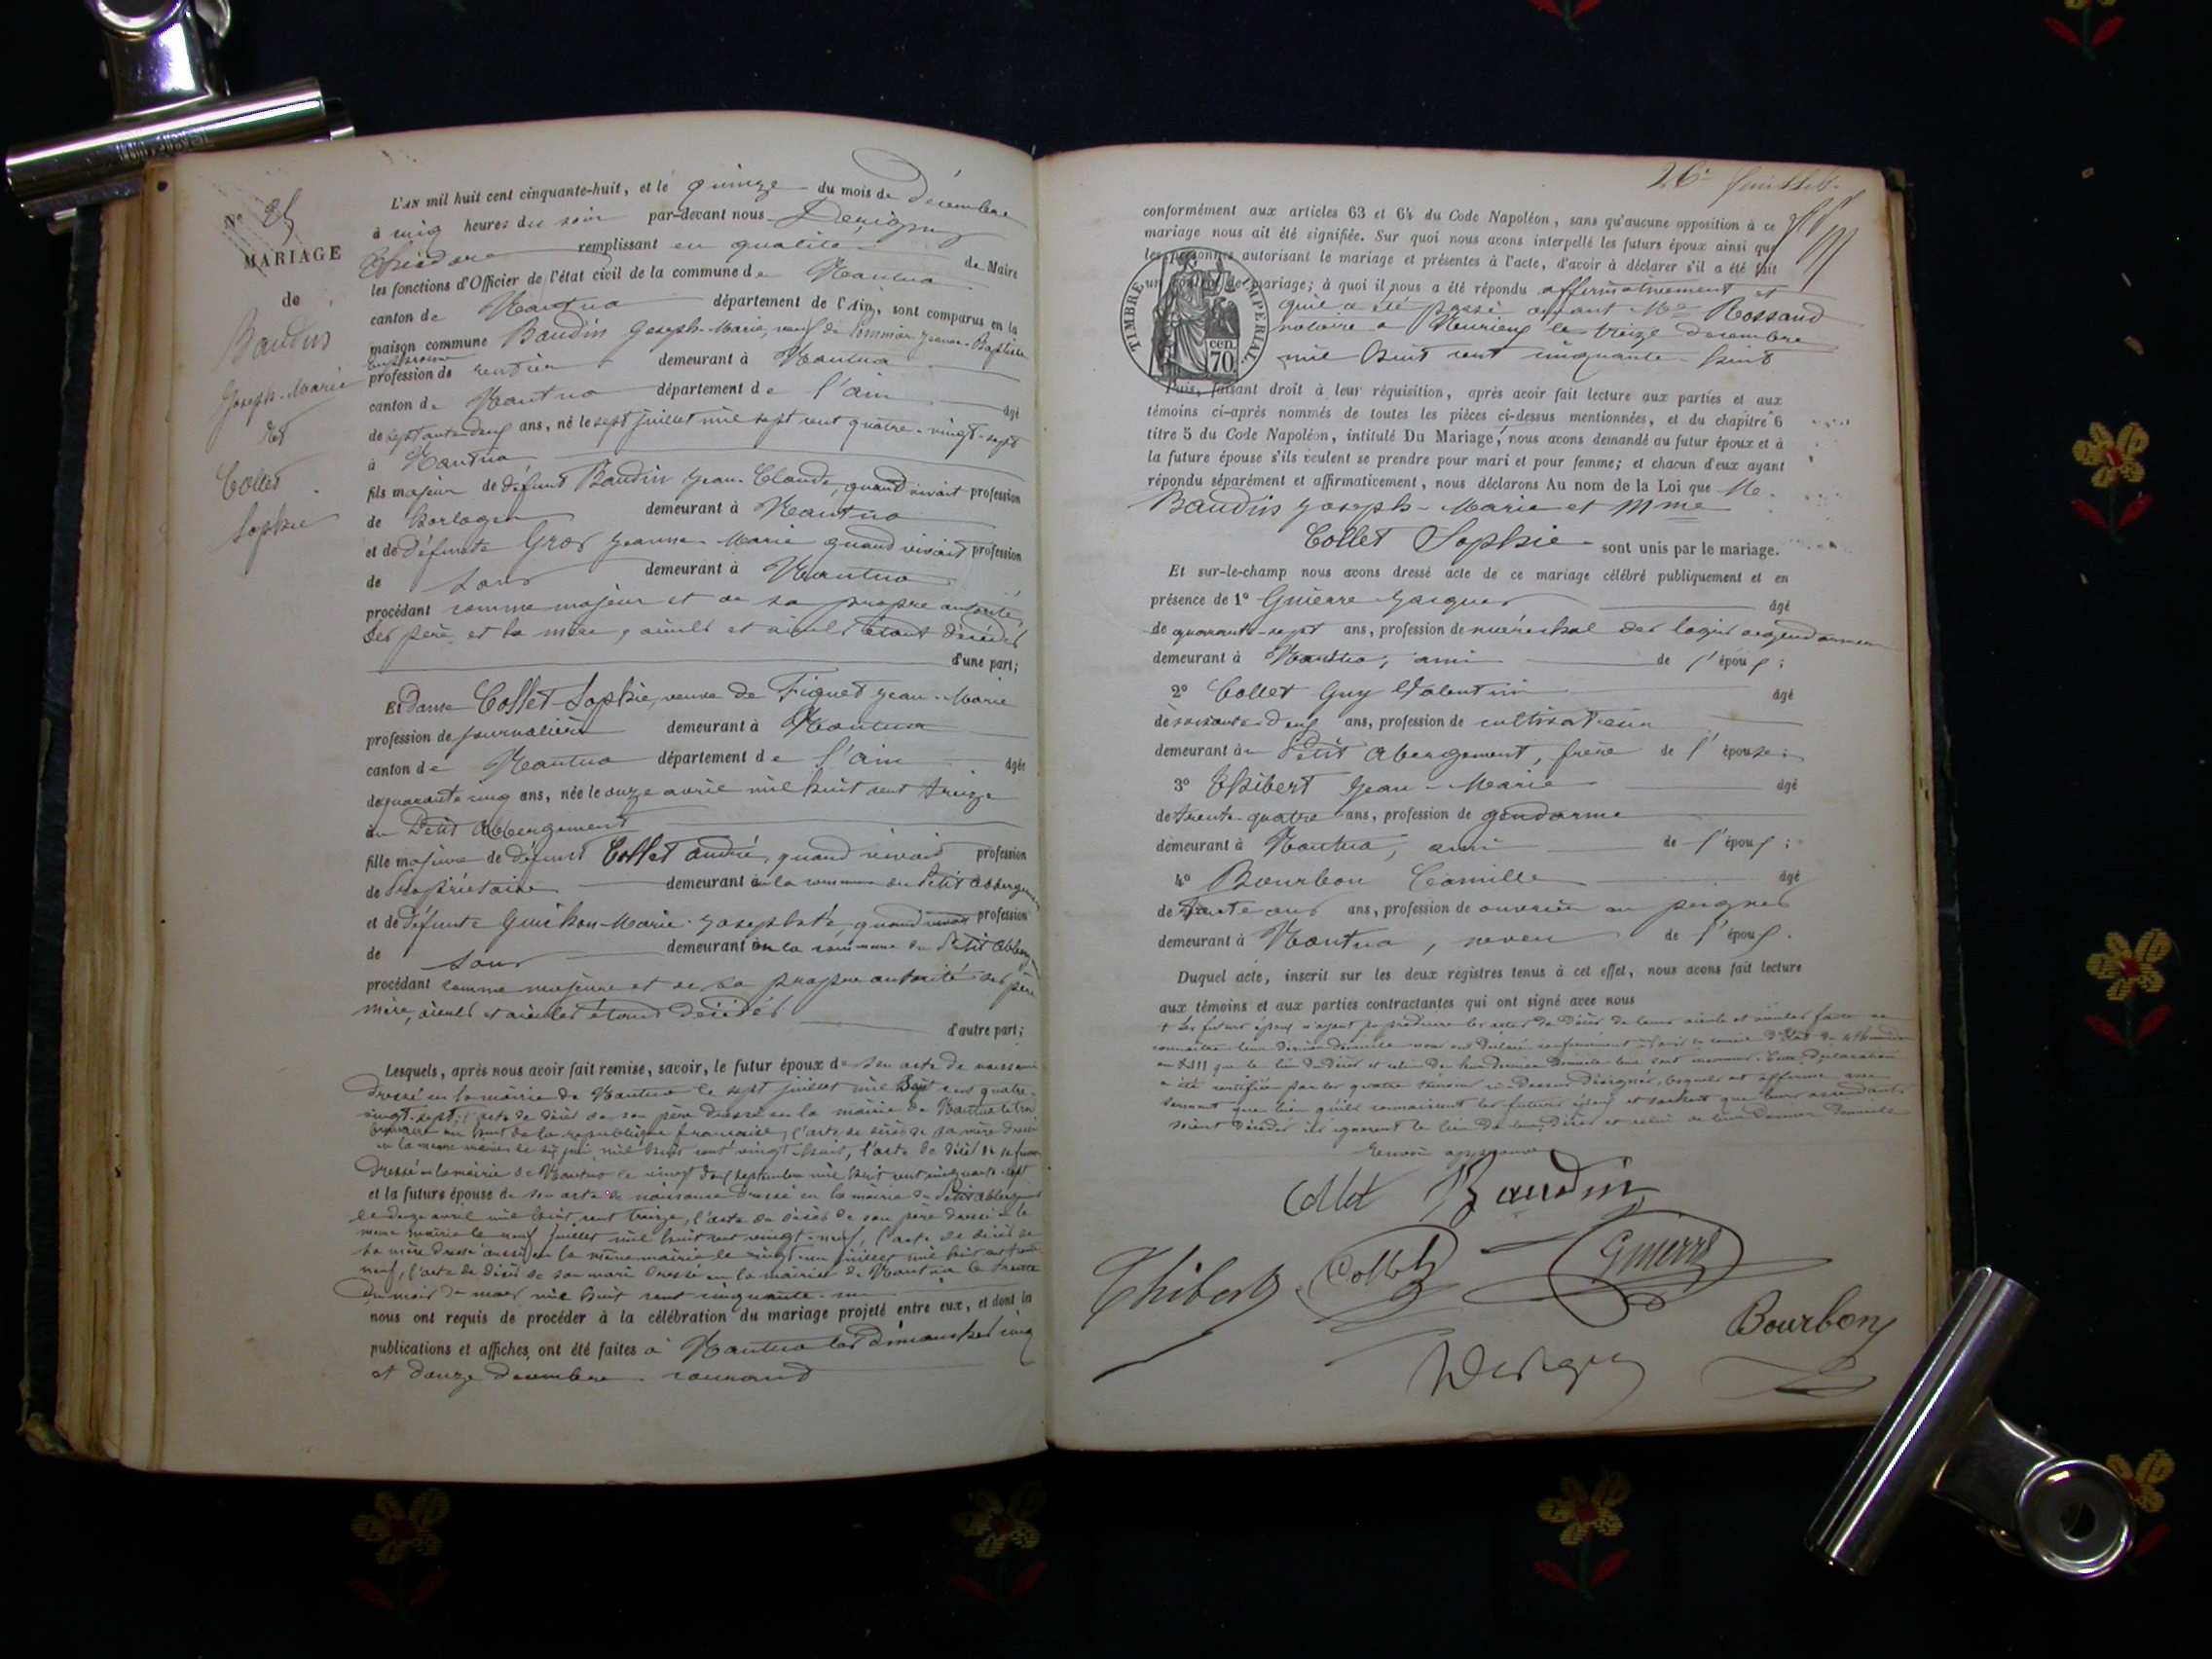 N° 25
MARIAGE
de
Baudin
Joseph-Marie
et
Collet
Sophie
L'AN mil huit cent cinquante-huit, et le quinze du mois de Décembre
à cinq heures du soir par-devant nous
remplissant en qualité de Maire
les fonctions d'Officier de l'état civil de la commune de Nantua
canton de Nantua département de l'Ain, sont comparus en la
maison commune Baudin Joseph-Marie, veuf de Jeanne-Baptiste
profession de rentier demeurant à Nantua
canton de Nantua département de l'ain âgé
de septante-deux ans, né le sept juillet mil sept cent quatre-vingt-sept
à Nantua
fils majeur de défunt Baudin Jean-Claude, quand vivait profession
de horloger demeurant à Nantua
et de défunte Gros Jeanne-Marie quand vivait profession
de sans demeurant à Nantua
procédant comme majeur et de sa propre autorité,
ses père et la mère, aïeuls et aïeules étant décédés
d'une part;
Et Dame Collet Sophie, veuve de Jean-Marie
profession de journalière demeurant à Nantua
canton de Nantua département de l'ain âgée
de quarante cinq ans, née le onze avril mil huit cent treize
au Petit Abbergement
fille majeure de défunt Collet André, quand vivait profession
de Propriétaire demeurant à la commune du Petit Abbergement
et de défunte Guichon Marie-Josephte, quand vivait profession
de sans demeurant en la commune du Petit Abbergement
procédant comme majeure et de sa propre autorité ses père
mère, aïeuls et aïeules étant décédés
d'autre part;
Lesquels, après nous avoir fait remise, savoir, le futur époux de son acte de naissance
dressé en la mairie de Nantua le sept juillet mil sept cent quatre-
vingt-sept; l'acte de décès de son père dressé en la mairie de Nantua le
an huit de la république française, l'acte de décès de sa mère dressé
en la même mairie le juin mil huit cent vingt-huit, l'acte de décès de sa femme
dressé en la mairie de Nantua le vingt deux septembre mil huit cent cinquante-sept
et la future épouse de son acte de naissance dressé en la mairie du Petit Abbergement
le douze avril mil huit cent treize, l'acte de décès de son père dressé à la
même mairie le neuf juillet mil huit cent vingt-neuf, l'acte de décès de
sa mère dressé aussi en la même mairie le juillet mil huit cent trente
neuf, l'acte de décès de son mari dressé en la mairie de Nantua le trente
du mois de mars mil huit cent cinquante-un
nous ont requis de procéder à la célébration du mariage projeté entre eux, et dont les
publications et affiches ont été faites à Nantua les dimanches cinq
et douze décembre courant
26e feuillet
conformément aux articles 63 et 64 du Code Napoléon, sans qu'aucune opposition à ce
mariage nous ait été signifiée. Sur quoi nous avons interpellé les futurs époux ainsi que
les personnes autorisant le mariage et présentes à l'acte, d'avoir à déclarer s'il a été fait
un contrat de mariage; à quoi il nous a été répondu affirmativement et
qu'il a été passé devant Me Rossand
notaire à le treize décembre
mil huit cent cinquante-huit
TIMBRE IMPERIAL.
70 cen
Puis, faisant droit à leur réquisition, après avoir fait lecture aux parties et aux
témoins ci-après nommés de toutes les pièces ci-dessus mentionnées, et du chapitre 6
titre 5 du Code Napoléon, intitulé Du Mariage, nous avons demandé au futur époux et à
la future épouse s'ils veulent se prendre pour mari et pour femme; et chacun d'eux ayant
répondu séparément et affirmativement, nous déclarons Au nom de la Loi que Mr
Baudin Joseph-Marie et Mme
Collet Sophie sont unis par le mariage.
Et sur-le-champ nous avons dressé acte de ce mariage célébré publiquement et en
présence de 1° Guierre Jacques âgé
de quarante-sept ans, profession de maréchal des logis de gendarmerie
demeurant à Nantua, ami de l'époux;
2° Collet Guy Valentin âgé
de soixante-deux ans, profession de cultivateur
demeurant au Petit Abergement, frère de l'épouse;
3° Thibert Jean-Marie âgé
de trente-quatre ans, profession de gendarme
demeurant à Nantua, ami de l'époux;
4° Bourbon Camille âgé
de ans, profession de ouvrier en peignes
demeurant à Nantua, neveu de l'époux.
Duquel acte, inscrit sur les deux registres tenus à cet effet, nous avons fait lecture
aux témoins et aux parties contractantes qui ont signé avec nous
+ Les futurs époux n'ayant pu produire les actes de décès de leurs aïeuls et aïeules faute de
connaître leur dernier domicile nous ont déclaré conformément à l'avis du conseil d'Etat du 4 thermidor
an XIII que le lieu du décès et celui de leur dernier domicile leur sont inconnus. Cette déclaration
a été certifiée par les quatre témoins ci-dessus désignés, lesquels ont affirmé avec
serment que bien qu'ils connaissent les futurs époux et sachent que leurs ascendants
soient décédés ils ignorent le lieu de leur décès et celui de leur dernier domicile
Renvoi approuvé
Collet Baudin
Thibert Collet Guierre
Bourbon